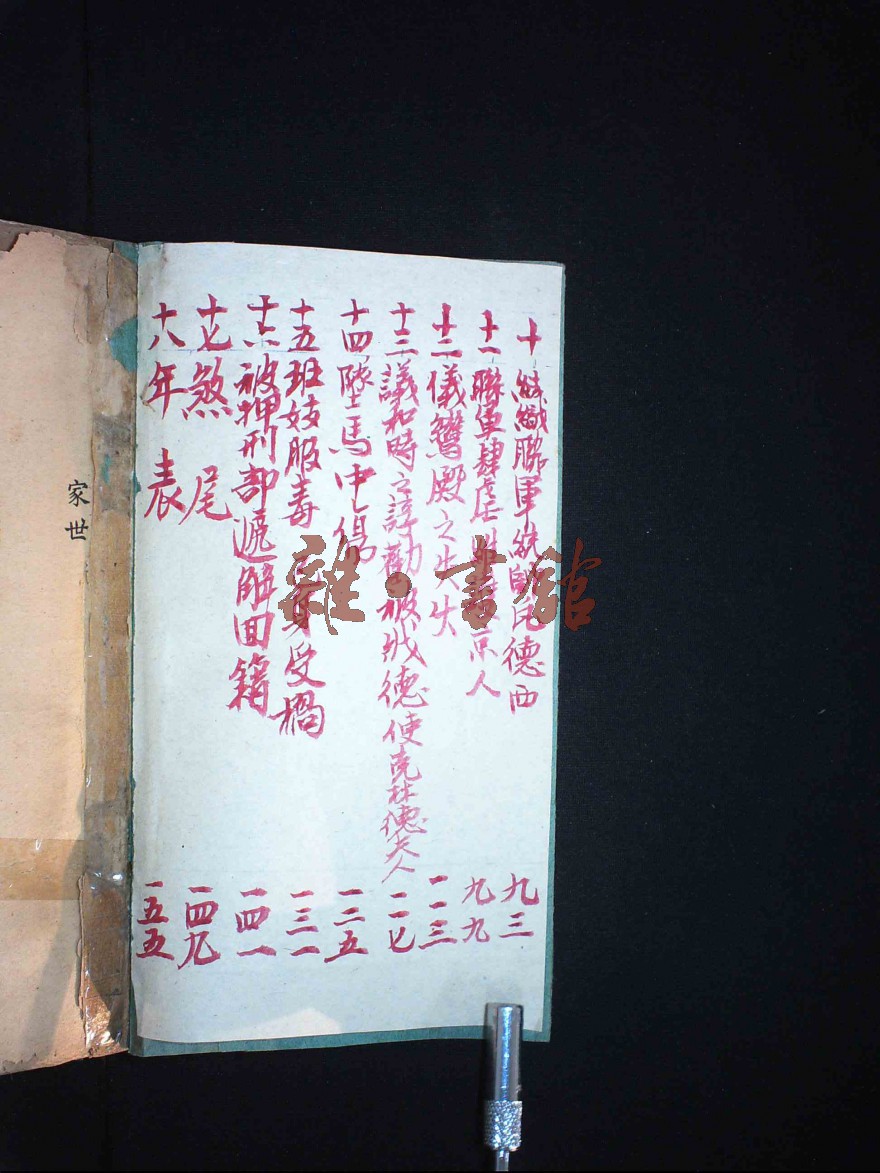 十 織聯軍統帥瓦德西 九三
十一 聯軍肆虐 京人 九九
十二 儀鸞殿之失火 一一三
十三 議和時之諄勸被戕德使克林德夫人 一一七
十四 墜馬中傷 一三五
十五 班妓服毒 身受禍 一三一
十六 被押刑部遞解回籍 一四一
十七 煞尾 一四九
十八 年表 一五五
家世
雜·書館